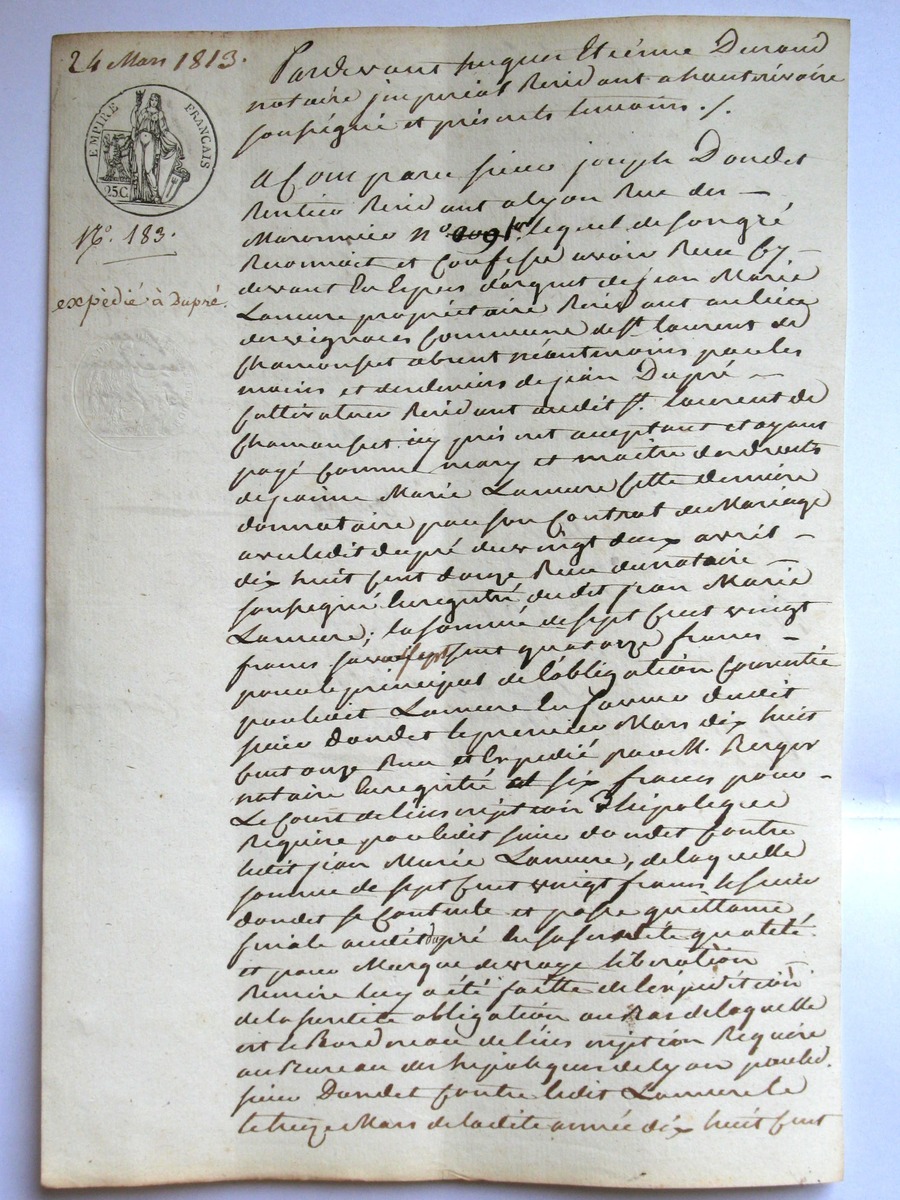 24 Mars 1813.
EMPIRE FRANÇAIS
25C
N.o 183.
expédié à Dupré.
Pardevant hugues Etiénne Durand
notaire jmpérial Résidant a hauterivoire
soussigné et présents temoins ./.
A Comparu sieur joseph Dondet
Rentier Résidant a lyon Rue des —
Maronniers n.o lequel de son gré
Reconnait et Confesse avoir Reçu cy —
devant En Espèces d'argent de jean Marie
Lamure propriétaire Résidant au lieu
des vignaces Commune de St. laurent de
Chamousset absent néantmoins par les
mains et des deniers de jean Dupré —
Cultivateur Résidant audit St. laurent de
Chamousset icy présent acceptant et ayant
payé Comme mary et maître des droits
de jeanne Marie Lamure cette dernière
donnataire par son Contrat de Mariage
avec ledit dupré du vingt deux avril —
dix huit cent douze Reçu du notaire —
soussigné Enregistré dudit jean Marie
Lamure; la somme de sept Cent vingt
francs savoir sept cent quatorze francs —
pour le principal de l'obligation Consentie
par ledit Lamure En faveur dudit
sieur dondet le premier Mars dix huit
Cent onze Reçu et Expedié par M. Berger
notaire Enregistré et six francs pour —
Le Court de l'inscription d'hipoteques
Requise par ledit sieur dondet Contre
ledit jean Marie Lamure, de laquelle
somme de sept Cent vingt francs le sieur
dondet se Contente et passe quittance
finale audit dupré En sa susdite qualité.
et pour Marque de vraye liberation —
Remise luy a été faitte de l'Expédition
de la susdite obligation au Bas de laquelle
est le Bordereau de l'inscription Requise
au Bureau des hipoteques de lyon par led.
sieur Dondet Contre ledit Lamure le
treize Mars de ladite année dix huit Cent